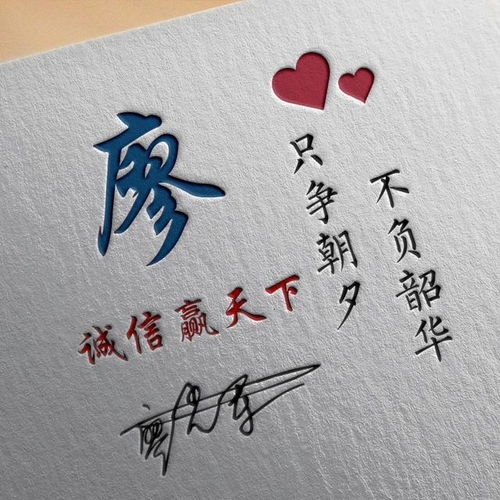 廖
只争朝夕
不负韶华
诚信赢天下